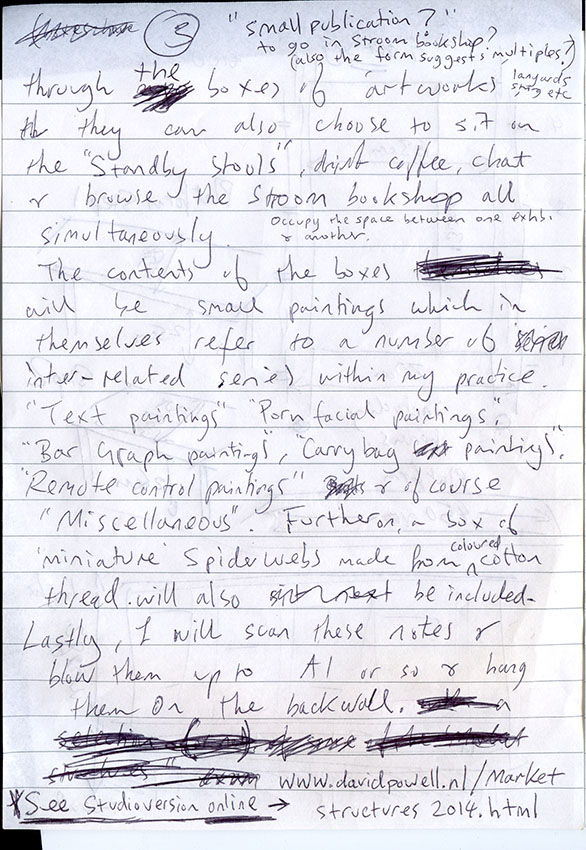 ③ "small publication?"
to go in Stroom bookshop?
(also the form suggests multiples?)
through the boxes of artworks, lanyards string etc
they can also choose to sit on
the "Standby Stools", drink coffee, chat
& browse the Stroom bookshop all
simultaneously. Occupy the space between one exhibi
& another.
The contents of the boxes
will be small paintings which in
themselves refer to a number of
inter-related series within my practice.
"Text paintings" "Porn facial paintings",
"Bar Graph paintings", "Carrybag paintings".
"Remote control paintings" & of course
"Miscellaneous". Further on, a box of
'miniature' Spiderwebs made from coloured cotton
thread will also be included.
Lastly, I will scan these notes &
blow them up to A1 or so & hang
them on the backwall. a
www.davidpowell.nl/Market
*See Studioversion online → structures 2014.html